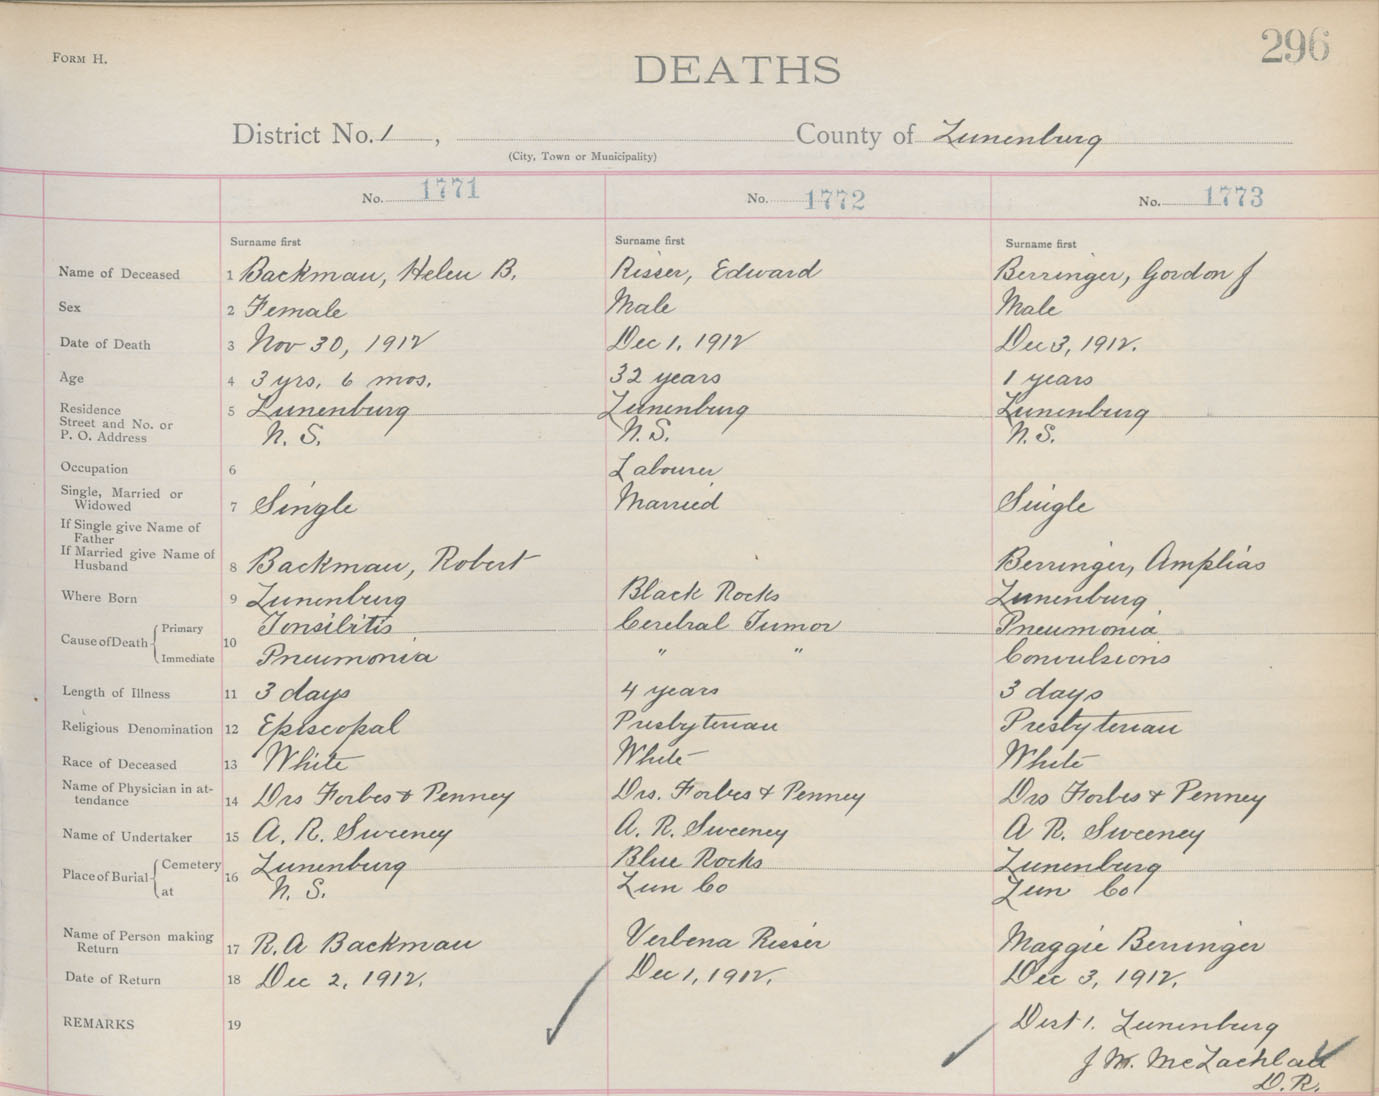 FORM H.
296
DEATHS
District No. 1, County of Lunenburg
(City, Town or Municipality)
No. 1771 No. 1772 No. 1773
Surname first Surname first Surname first
Name of Deceased 1 Backman, Helen B. Risser, Edward Berringer, Gordon J
Sex 2 Female Male Male
Date of Death 3 Nov 30, 1912 Dec 1, 1912 Dec 3, 1912.
Age 4 3 yrs. 6 mos. 32 years 1 years
Residence 5 Lunenburg Lunenburg Lunenburg
Street and No. or
P. O. Address N. S. N. S. N. S.
Occupation 6 Labourer
Single, Married or
Widowed 7 Single Married Single
If Single give Name of
Father
If Married give Name of
Husband 8 Backman, Robert Berringer, Amplias
Where Born 9 Lunenburg Black Rocks Lunenburg
Cause of Death Primary 10 Tonsilitis Cerebral Tumor Pneumonia
Immediate Pneumonia " " Convulsions
Length of Illness 11 3 days 4 years 3 days
Religious Denomination 12 Episcopal Presbyterian Presbyterian
Race of Deceased 13 White White White
Name of Physician in at-
tendance 14 Drs Forbes & Penney Drs. Forbes & Penney Drs Forbes & Penney
Name of Undertaker 15 A. R. Sweeney A. R. Sweeney A R. Sweeney
Place of Burial Cemetery 16 Lunenburg Blue Rocks Lunenburg
at N. S. Lun Co Lun Co
Name of Person making
Return 17 R. A Backman Verbena Risser Maggie Berringer
Date of Return 18 Dec 2, 1912. Dec 1, 1912. Dec 3, 1912.
REMARKS 19 Dist 1. Lunenburg
J M. McLachlan
D. R.